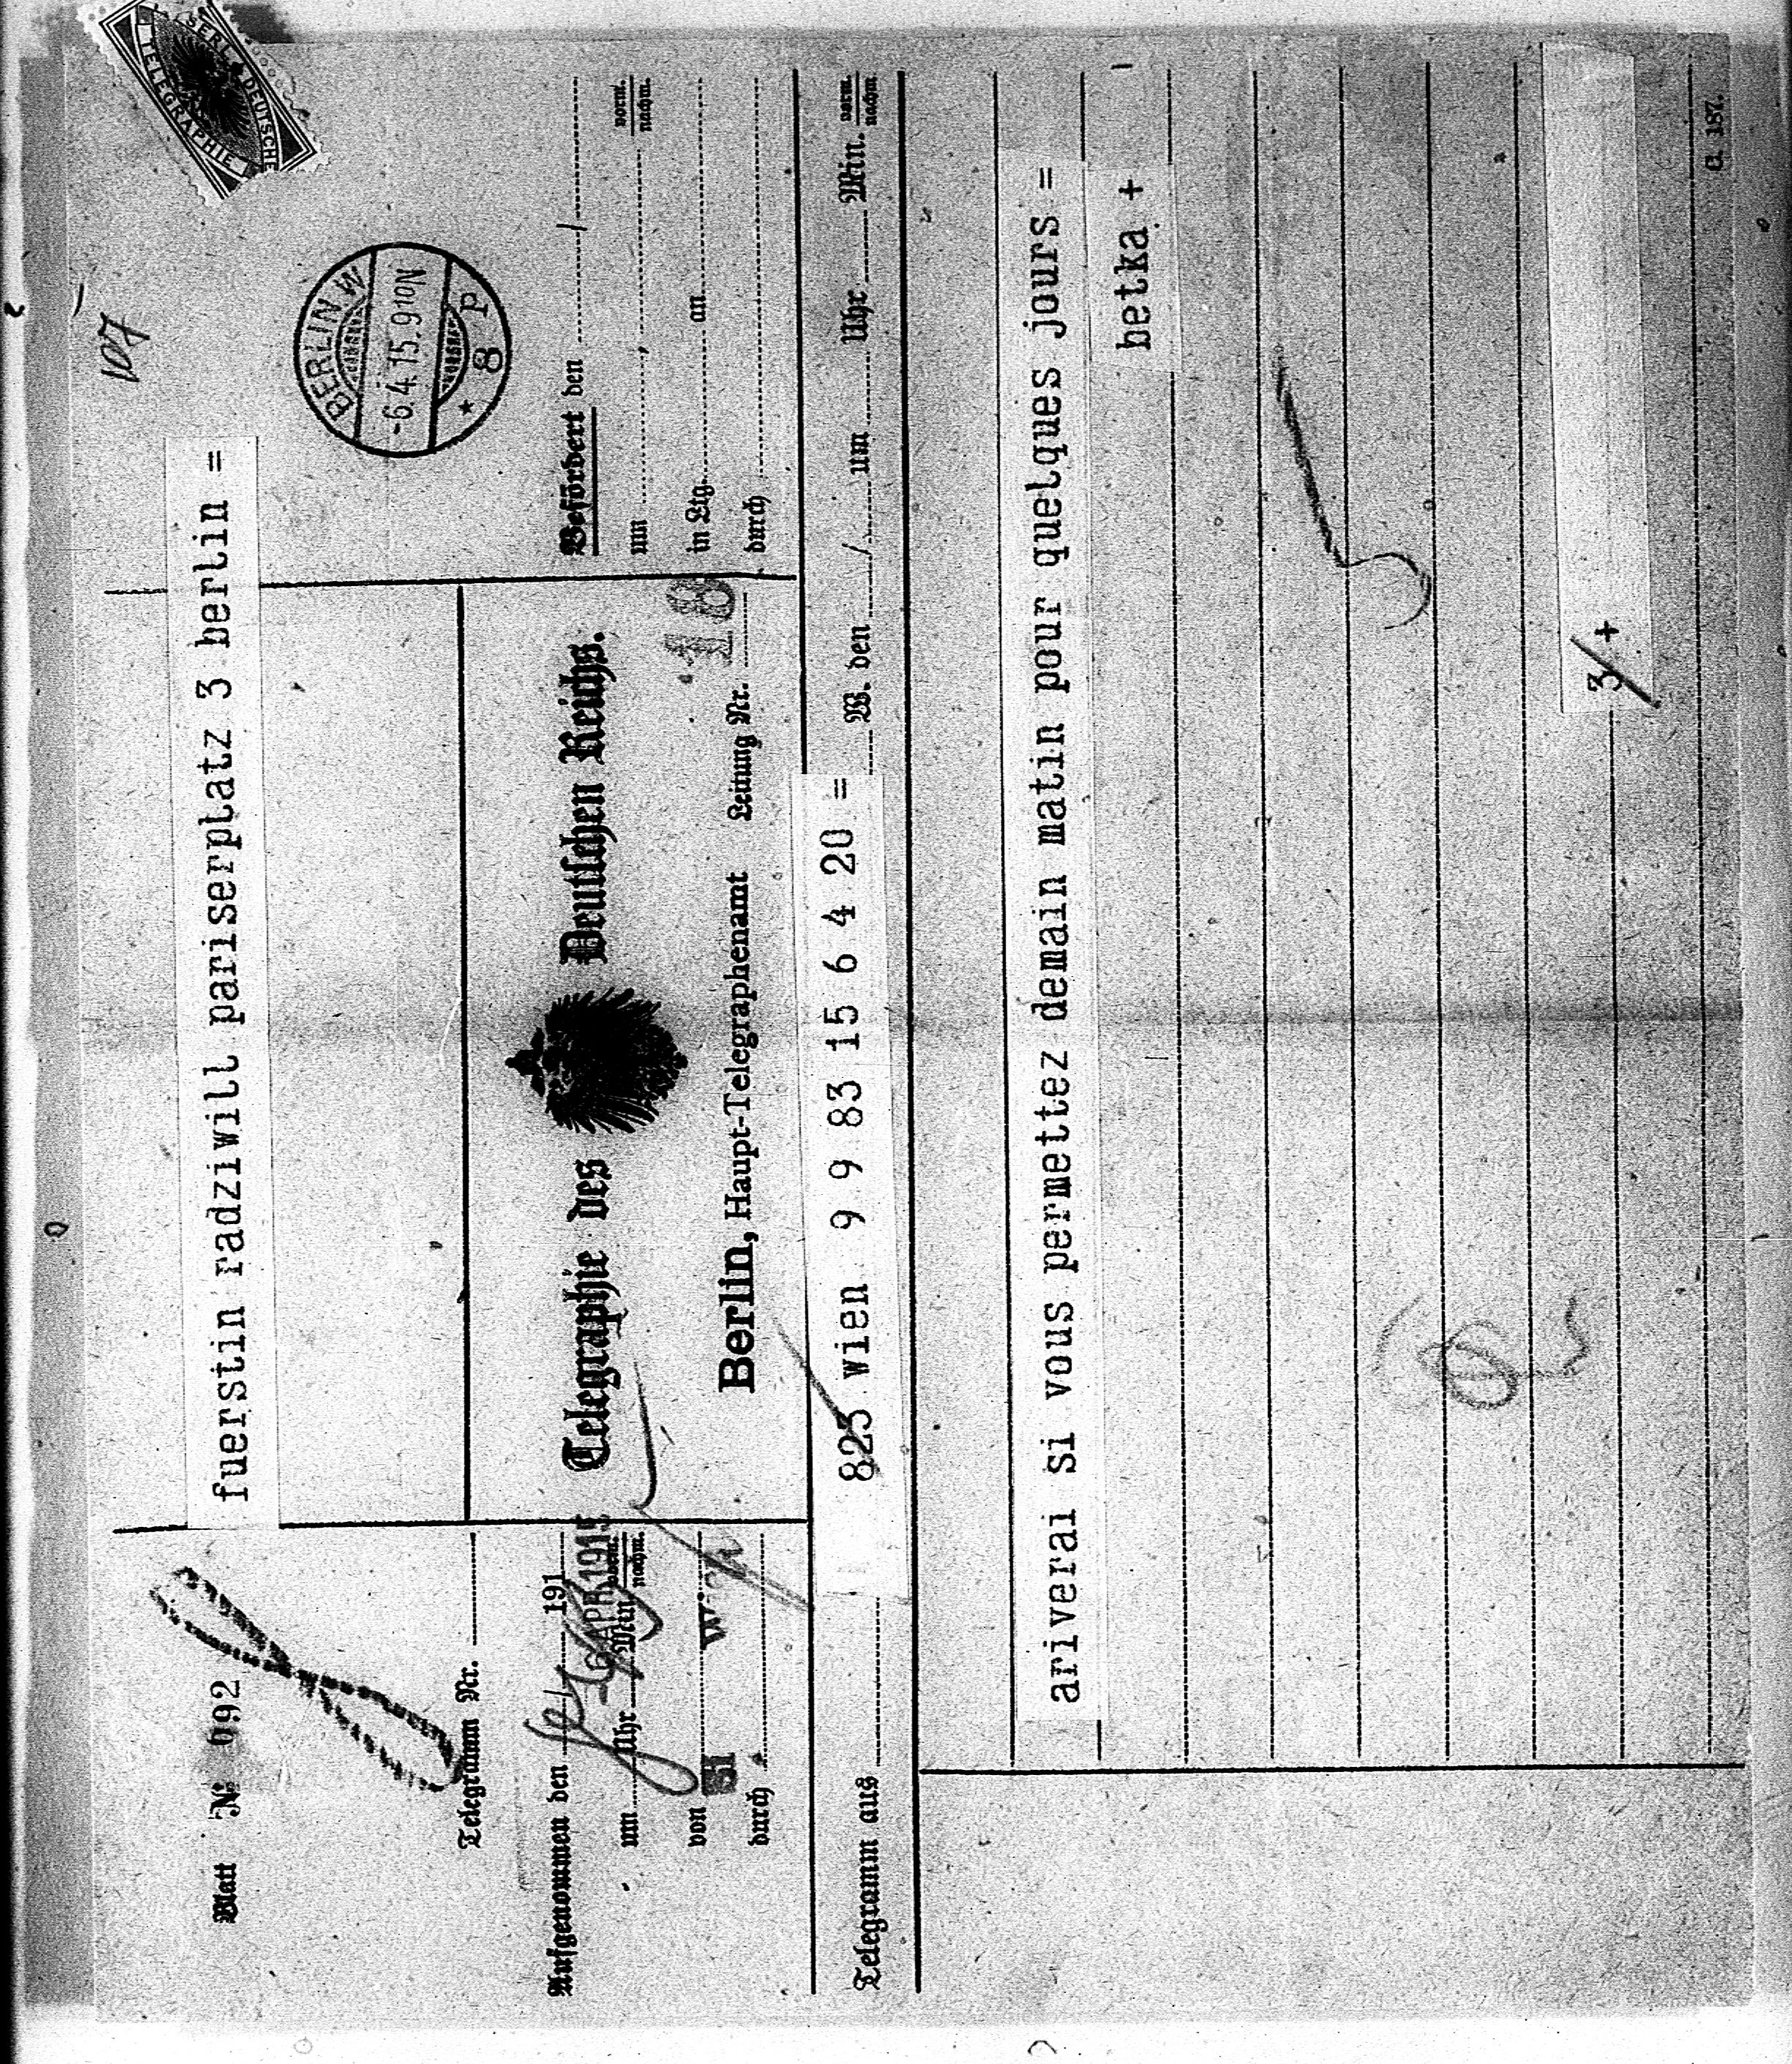 Blatt Nº 092
fuerstin radziwill pariserplatz 3 berlin =
107
KAISERL. DEUTSCHE
TELEGRAPHIE
BERLIN W
-6.4.15.9 10N
* 8 P
Telegramm Nr.
Aufgenommen den / 191
6 APR 1915
um Uhr Min. vorm. nachm.
von
durch
Telegraphie des Deutschen Reichs.
Berlin, Haupt-Telegraphenamt Leitung Nr. 18
Befördert den /
um , vorm. nachm.
in Ltg. an
durch
Telegramm aus 825 wien 9 9 83 15 6 4 20 = W. den / um Uhr Min. vorm. nachm.
ariverai si vous permettez demain matin pour quelques jours =
betka +
3/+
C. 187.